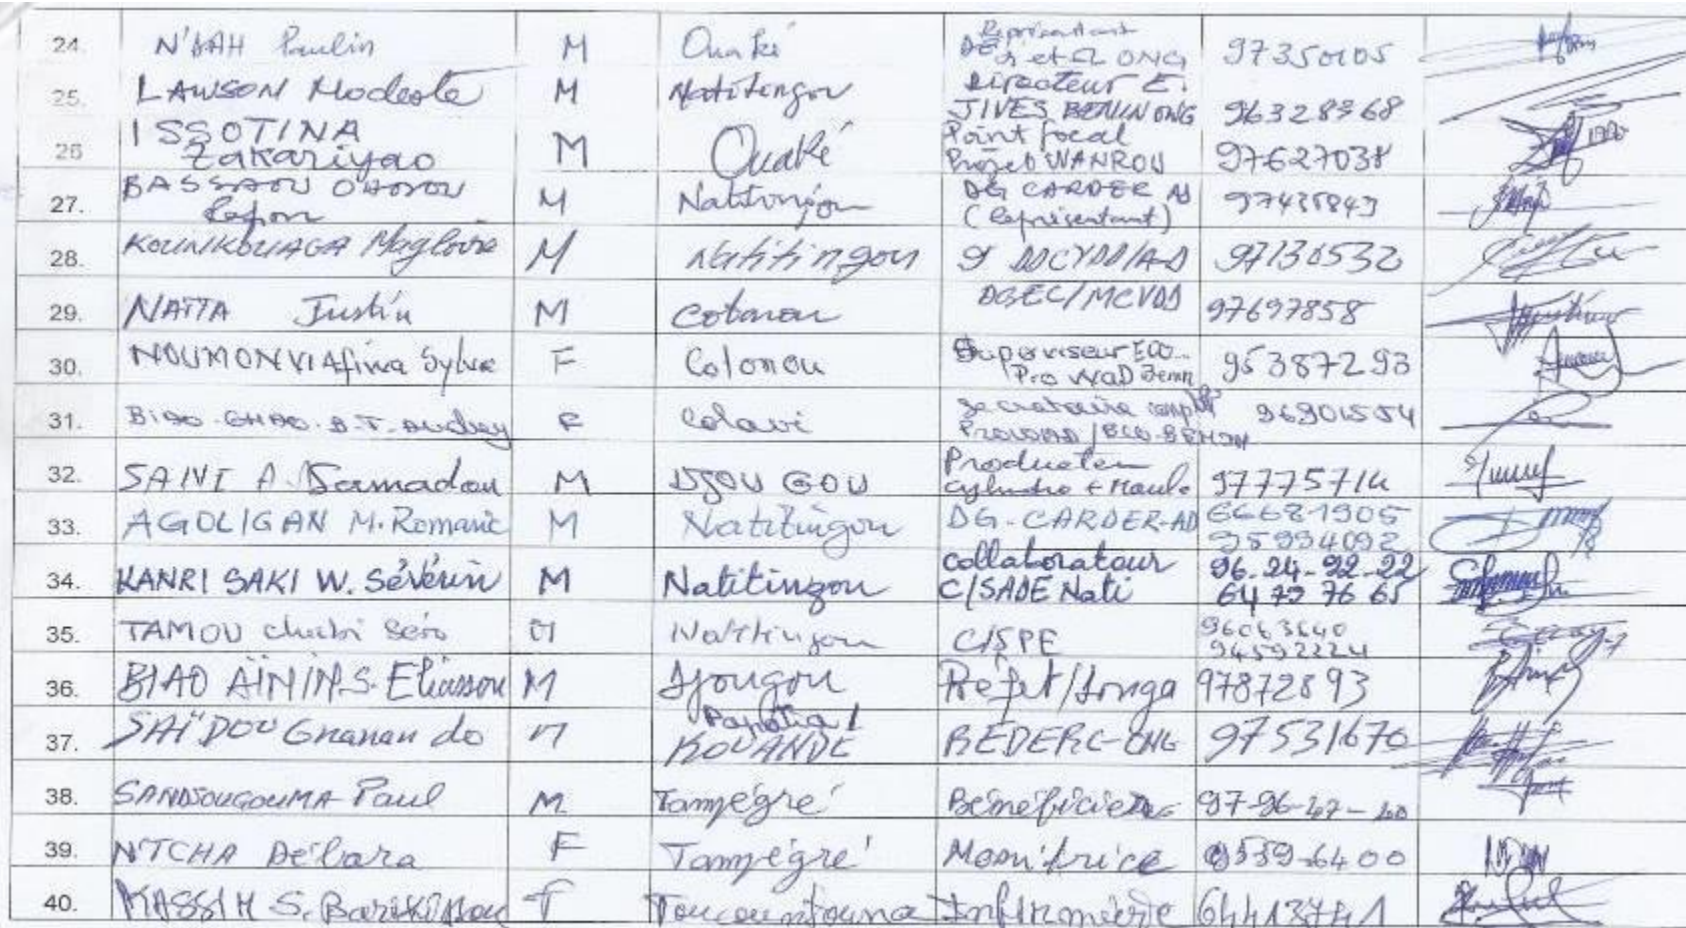 24. N'DAH Paulin M Ouaké Représentant
DG r et Ω ONG 97350105
25. LAWSON Modeste M Natitingou Directeur E.
JIVES BENIN ONG 96328968
26 ISSOTINA Zakariyao M Ouaké Point focal
Projet WANROU 97627038
27. BASSAOU O M Natitingou DG CARDER AD
(Représentant) 97435843
28. KOUNKOUAGA Magloire M Natitingou DDCVDD/A-D 97136532
29. NATTA Justin M Cotonou DGEC/MCVDD 97697858
30. NOUMONVI Afiwa Sylvie F Cotonou Superviseur ECO-
Pro WaD Benin 95387293
31. BIAO-GHAO. B.T. Audrey F Calavi Secrétaire
/ECO-BENIN 96901554
32. SANI A. Samadou M DJOU GOU Producteur
Cylindre + Moule 97775714
33. AGOLIGAN M. Romaric M Natitingou DG-CARDER-AD 66681905
95994092
34. KANRI SAKI W. Sévérin M Natitingou Collaborateur
C/SADE Nati 96-24-92-22
64 79 76 65
35. TAMOU Chabi Séro M Natitingou C/SPE 96063640
94592224
36. BIAO AÏNIN S. Eliassou M Djougou Prefet/Donga 97872893
37. SAÏDOU Gnanando M
KOUANDE REDERC-ONG 97531670
38. SANDJOUGOUMA Paul M Tampégré Bénéficiere 97-96-47-40
39. N'TCHA Débora F Tampégré Monitrice 9539-6400
40. KASSIM S. Barikissou F Toucountouna Infirmière 64413741